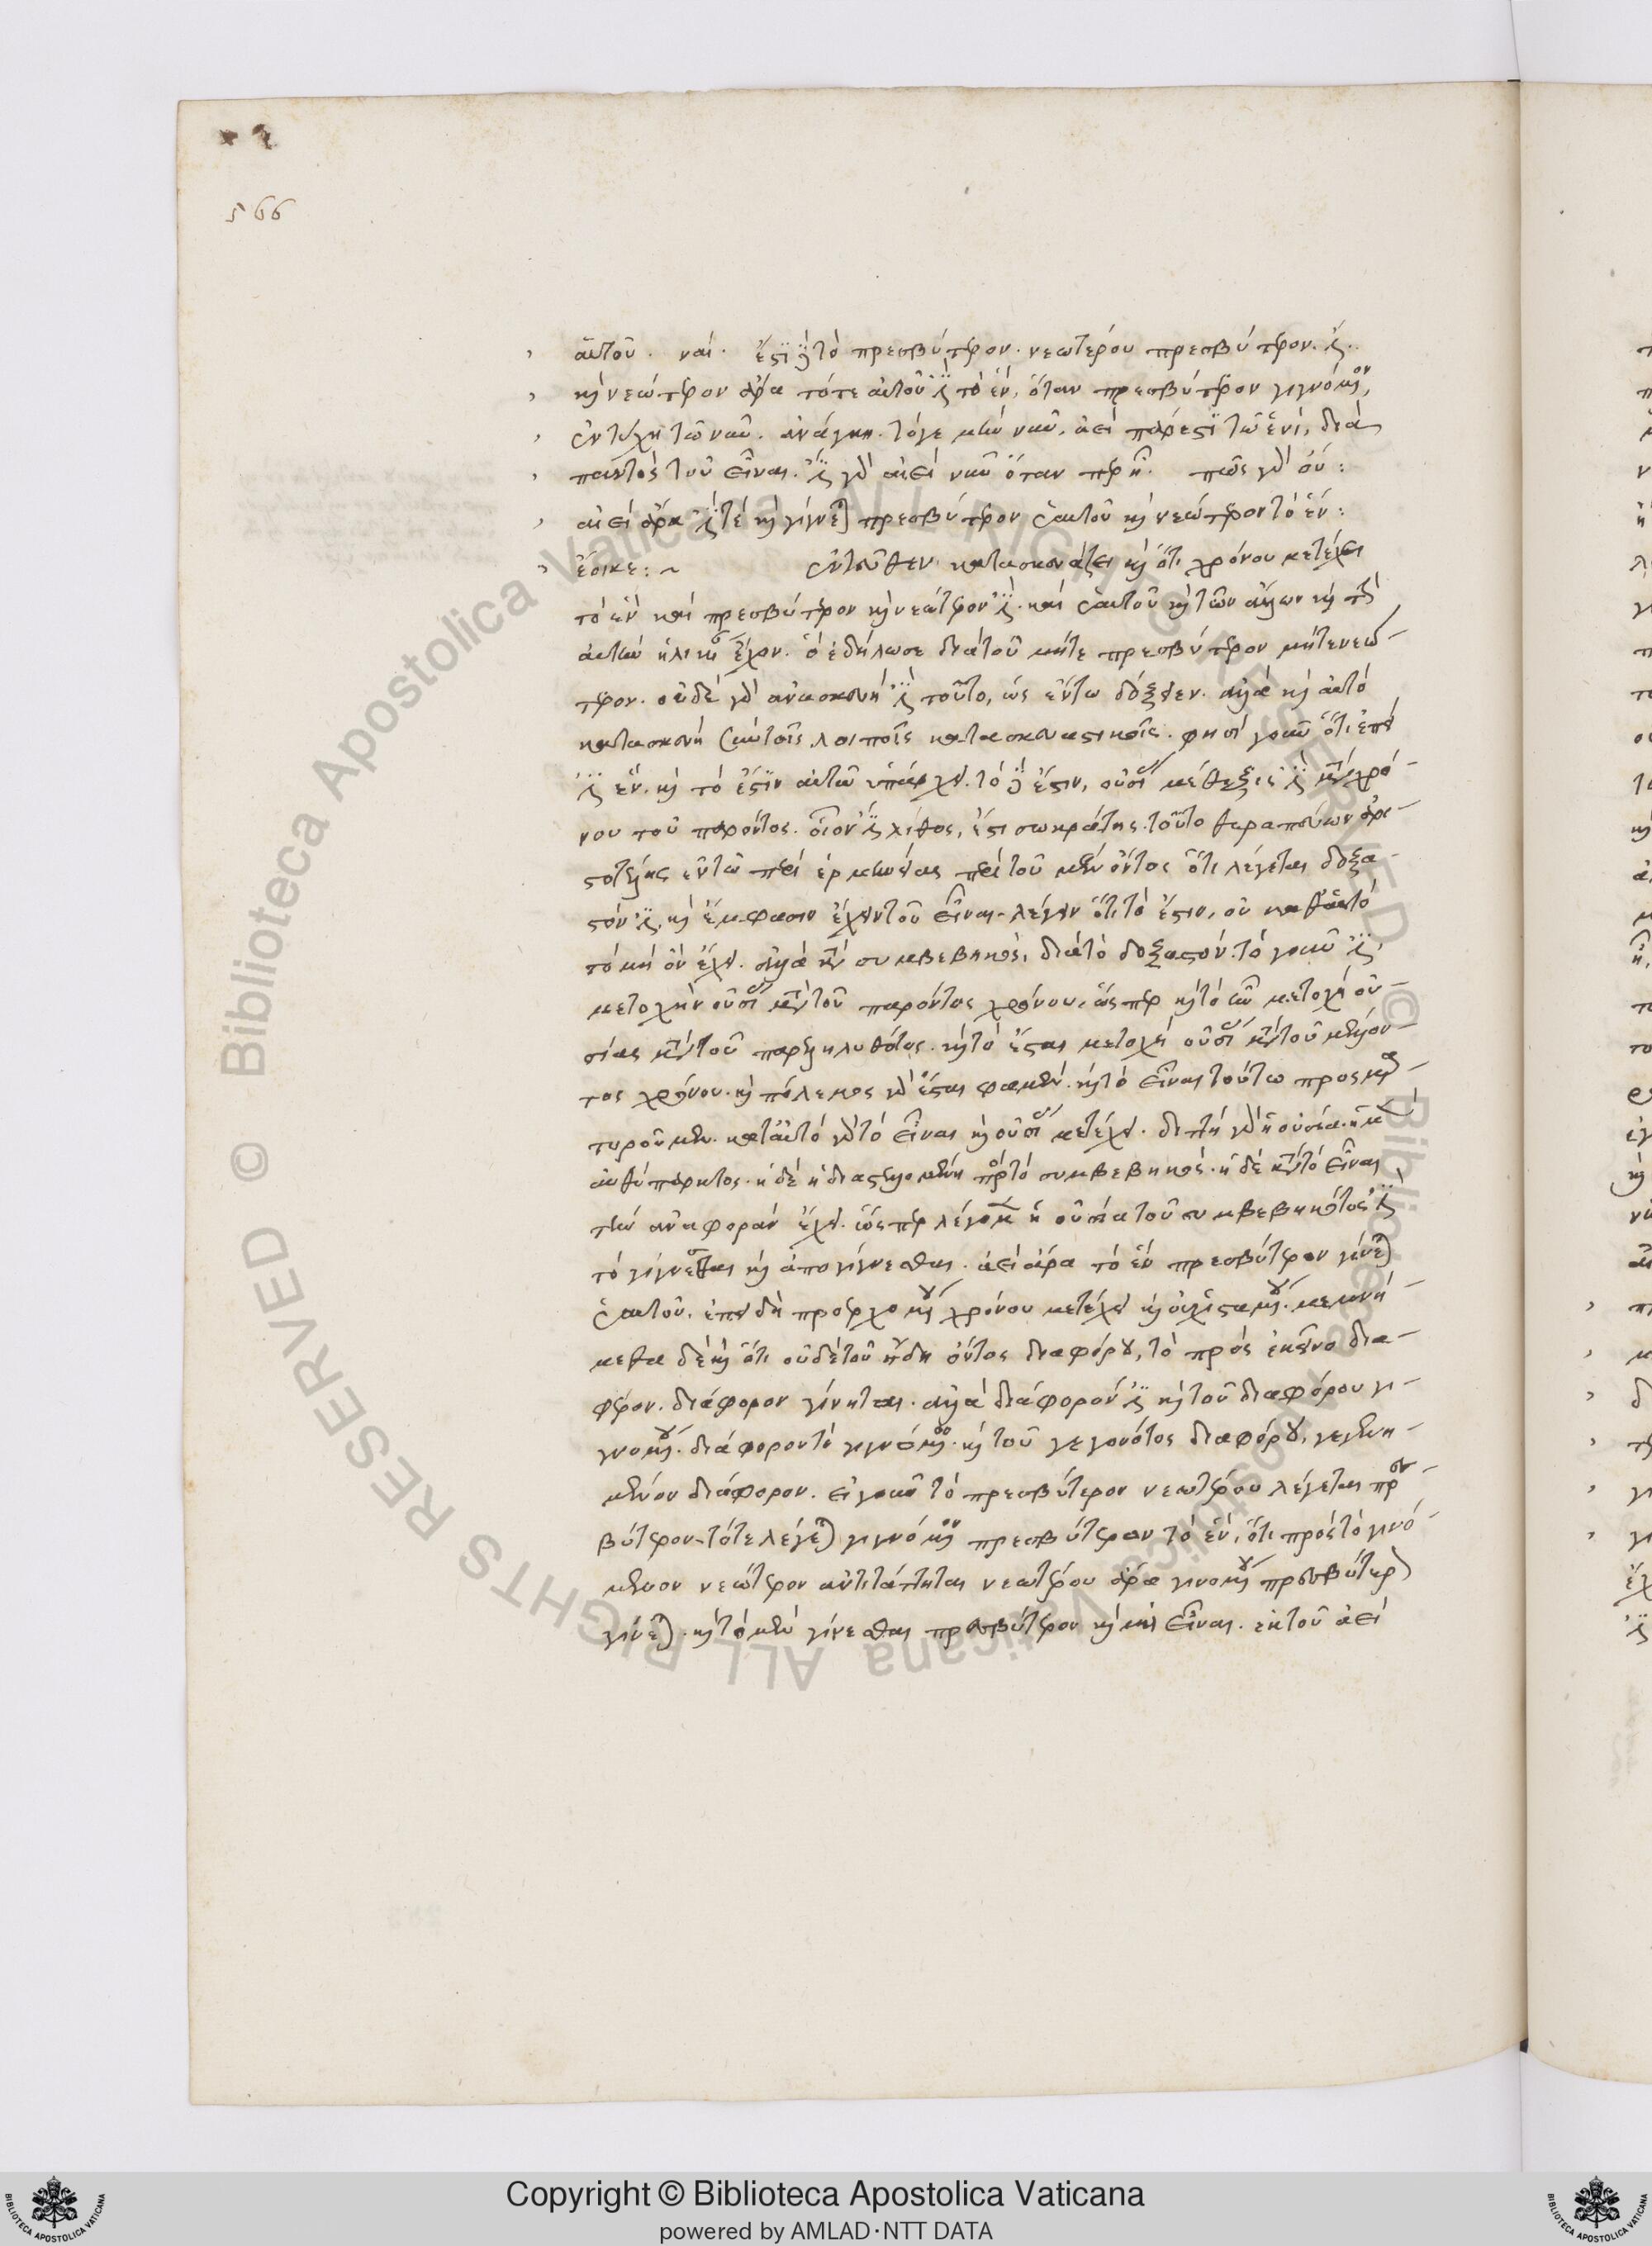 566
αὑτοῦ. ναί. ἔστι δὲ τὸ πρεσβύτερον. νεωτέρου πρεσβύτερον. ἔστι.
καὶ νεώτερον ἄρα τότε αὑτοῦ ἐστι τὸ ἕν, ὅταν πρεσβύτερον γιγνόμενον,
ἐντύχῃ τῷ νῦν. ἀνάγκη. τόγε μὴν νῦν, ἀεὶ πάρεστι τῷ ἑνί, διὰ
παντὸς τοῦ εἶναι. ἔστι γὰρ αἰεὶ νῦν ὅταν περ ᾖ. πῶς γὰρ οὔ:
αἰεὶ ἄρα ἐστί τε καὶ γίγνεται πρεσβύτερον ἑαυτοῦ καὶ νεώτερον τὸ ἕν:
ἔοικε: ~ ἐντεῦθεν κατασκευάζει καὶ ὅτι χρόνου μετέχει
τὸ ἓν καὶ πρεσβύτερον καὶ νεώτερον ἐστι. καὶ ἑαυτοῦ καὶ τῶν ἄλλων καὶ τὴν
αὐτὴν ἡλικίαν ἔχον. ὃ ἐδήλωσε διὰ τοῦ μήτε πρεσβύτερον μήτε νεώ-
τερον. οὐδὲ γὰρ ἀνασκευή ἐστι τοῦτο, ὡς ἔν τῳ δόξειεν. ἀλλὰ καὶ αὐτὸ
κατασκευὴ σὺν τοῖς λοιποῖς κατασκευαστικοῖς. φησὶ γοῦν ὅτι ἐπεί
ἐστιν ἕν, καὶ τὸ ἔστιν αὐτῷ ὑπάρχει. τὸ δὲ ἔστιν, οὐσίας μέθεξίς ἐστι μετὰ χρό-
νου τοῦ παρόντος. οἷον ἔστι λίθος, ἔστι σωκράτης. τοῦτο θεραπεύων ἀρι-
στοτέλης ἐν τῷ περὶ ἑρμηνείας περὶ τοῦ μὴ ὄντος ὅτι λέγεται δοξα-
στόν ἐστι, καὶ ἔμφασιν ἔχειν τοῦ εἶναι. λέγειν ὅτι τὸ ἔστιν, οὐ καθ' αὑτὸ
τὸ μὴ ὂν ἔχει. ἀλλὰ κατὰ συμβεβηκός, διὰ τὸ δοξαστόν. τὸ γοῦν ἔστι,
μετοχὴν οὐσίας μετὰ τοῦ παρόντος χρόνου, ὥσπερ καὶ τὸ ἦν μετοχὴ οὐ-
σίας μετὰ τοῦ παρεληλυθότος. καὶ τὸ ἔσται μετοχὴ οὐσίας μετὰ τοῦ μέλλον-
τος χρόνου. καὶ πόλεμος γὰρ ἔσται φαμέν. καὶ τὸ εἶναι τούτῳ προσμαρ-
τυροῦμεν. κατ' αὐτὸ γὰρ τὸ εἶναι καὶ οὐσίας μετέχει. διττὴ γὰρ ἡ οὐσία. ἡ μὲν
αὐθύπαρκτος. ἡ δὲ ἡ διαστελλομένη πρὸς τὸ συμβεβηκός. ἡ δὲ κατὰ τὸ εἶναι
τὴν ἀναφορὰν ἔχει. ὥσπερ λέγομεν ἡ οὐσία τοῦ συμβεβηκότος ἐστὶ
τὸ γίγνεσθαι καὶ ἀπογίγνεσθαι. ἀεὶ ἄρα τὸ ἓν πρεσβύτερον γίνεται
ἑαυτοῦ. ἐπειδὴ προερχομένου χρόνου μετέχει καὶ οὐχ ἱσταμένου. μεμνή-
μεθα δὲ καὶ ὅτι οὐδὲ τοῦ ἤδη ὄντος διαφόρου, τὸ πρὸς ἐκεῖνο δια-
φέρον. διάφορον γίνηται. ἀλλὰ διάφορόν ἐστι καὶ τοῦ διαφόρου γι-
γνομένου. διάφορόν τι γιγνόμενον. καὶ τοῦ γεγονότος διαφόρου, γεγενη-
μένον διάφορον. εἰ γοῦν τὸ πρεσβύτερον νεωτέρου λέγεται πρεσ-
βύτερον. τότε λέγεται γιγνόμενον πρεσβύτερον τὸ ἕν, ὅτι πρὸς τὸ γινό-
μενον νεώτερον ἀντιτάττηται νεωτέρου ἄρα γινομένου πρεσβύτερον
γίνεται. καὶ τὸ μὲν γίνεσθαι πρεσβύτερον καὶ μὴ εἶναι. ἐκ τοῦ ἀεὶ
Copyright © Biblioteca Apostolica Vaticana
powered by AMLAD·NTT DATA